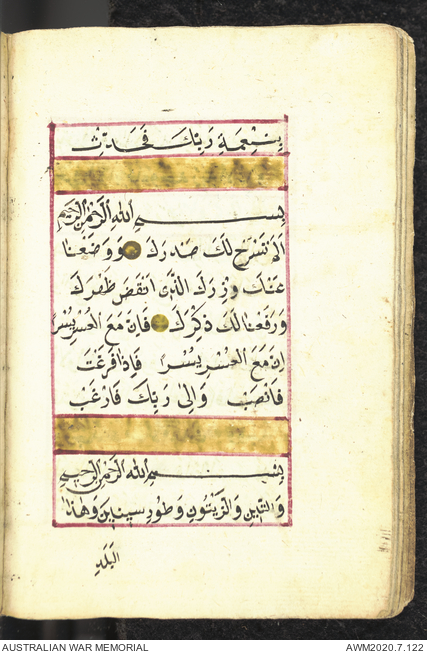 بِنِعْمَةِ رَبِّكَ فَحَدِّثْ
بسم الله الرحمن الرحيم
اَلَمْ نَشْرَحْ لَكَ صَدْرَكَ وَوَضَعْنَا
عَنْكَ وِزْرَكَ الَّذِى اَنْقَضَ ظَهْرَكَ
وَرَفَعْنَا لَكَ ذِكْرَكَ فَاِنَّ مَعَ الْعُسْرِ يُسْرًا
اِنَّ مَعَ الْعُسْرِ يُسْرًا فَاِذَا فَرَغْتَ
فَانْصَبْ وَاِلٰى رَبِّكَ فَارْغَبْ
بسم الله الرحمن الرحيم
وَالتِّينِ وَالزَّيْتُونِ وَطُورِ سِينِينَ وَهٰذَا
الْبَلَدِ
AUSTRALIAN WAR MEMORIAL
AWM2020.7.122